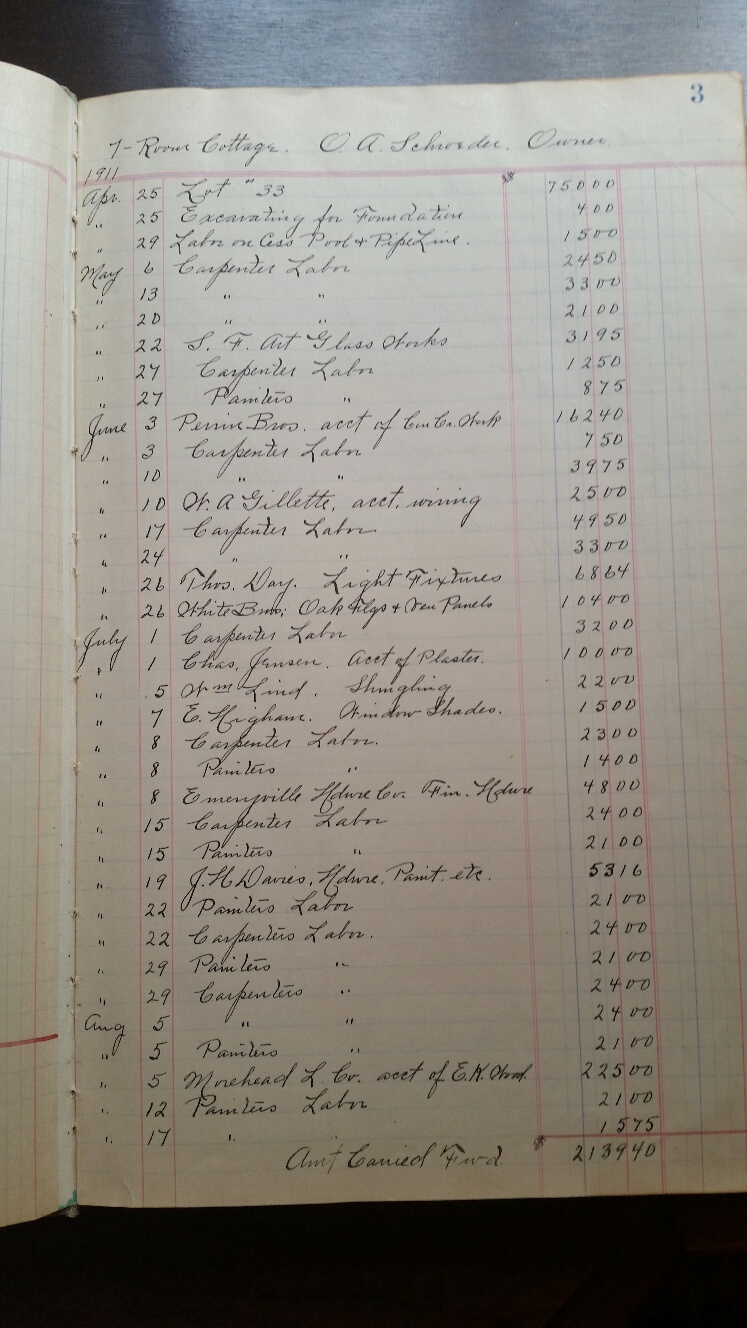 3
7-Room Cottage. O. A. Schroeder. Owner.
1911
Apr. 25 Lot #33 $ 750 00
" 25 Excavating for Foundation 4 00
" 29 Labor on Cess Pool & Pipe Line. 15 00
May 6 Carpenter Labor 24 50
" 13 " " 33 00
" 20 " " 21 00
" 22 S. F. Art Glass Works 31 95
" 27 Carpenter Labor 12 50
" 27 Painters " 8 75
June 3 Perrin Bros. acct of Work 162 40
" 3 Carpenter Labor 7 50
" 10 " " 39 75
" 10 W. A Gillette, acct. wiring 25 00
" 17 Carpenter Labor 49 50
" 24 " " 33 00
" 26 Thos. Day. Light Fixtures 68 64
" 26 White Bros; Oak Flgs & Ven Panels 104 00
July 1 Carpenter Labor 32 00
" 1 Chas, Jensen. Acct of Plaster. 100 00
" 5 Wm Lind. Shingling 22 00
" 7 E. Higham. Window Shades. 15 00
" 8 Carpenter Labor. 23 00
" 8 Painters " 14 00
" 8 Emeryville Hdwre Co. Fin. Hdwre 48 00
" 15 Carpenter Labor 24 00
" 15 Painters " 21 00
" 19 J. H. Davies, Hdwre, Paint. etc. 53 16
" 22 Painters Labor 21 00
" 22 Carpenters Labor. 24 00
" 29 Painters " 21 00
" 29 Carpenters " 24 00
Aug 5 " " 24 00
" 5 Painters " 21 00
" 5 Morehead L. Co. acct of E. K. Wood. 225 00
" 12 Painters Labor 21 00
" 17 " " 15 75
Am't Carried Fw'd. $ 2139 40